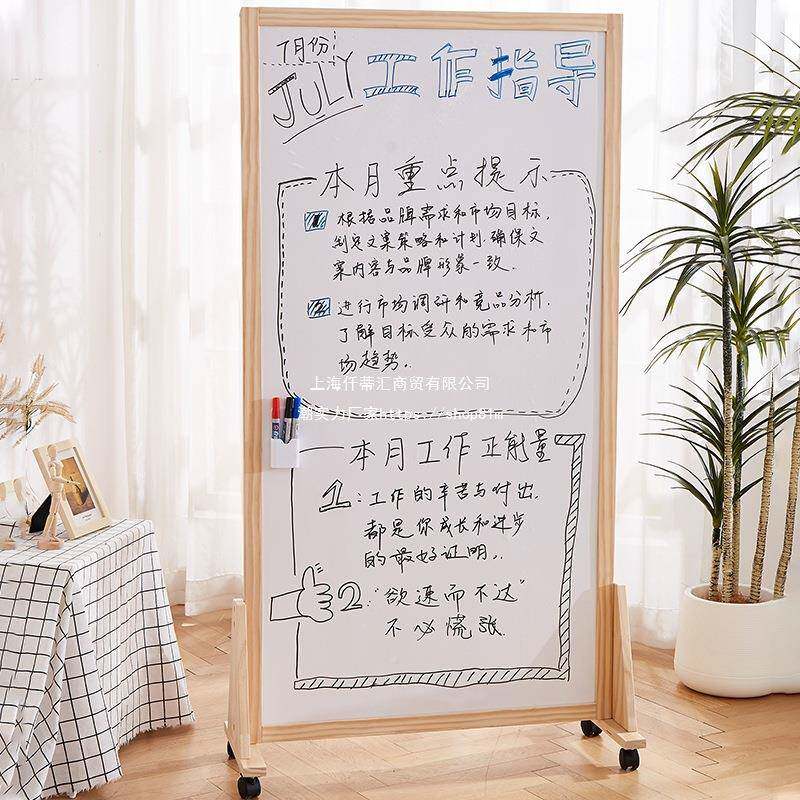 7月份
JULY 工作指导
本月重点提示
根据品牌需求和市场目标,
制定文案策略和计划.确保文
案内容与品牌形象一致.
进行市场调研和竞品分析.
了解目标受众的需求和市
场趋势.
上海仟蒂汇商贸有限公司
力厂家https://shop61m
本月工作正能量
1:工作的辛苦与付出.
都是你成长和进步
的最好证明.
2:"欲速而不达"
不必慌张.